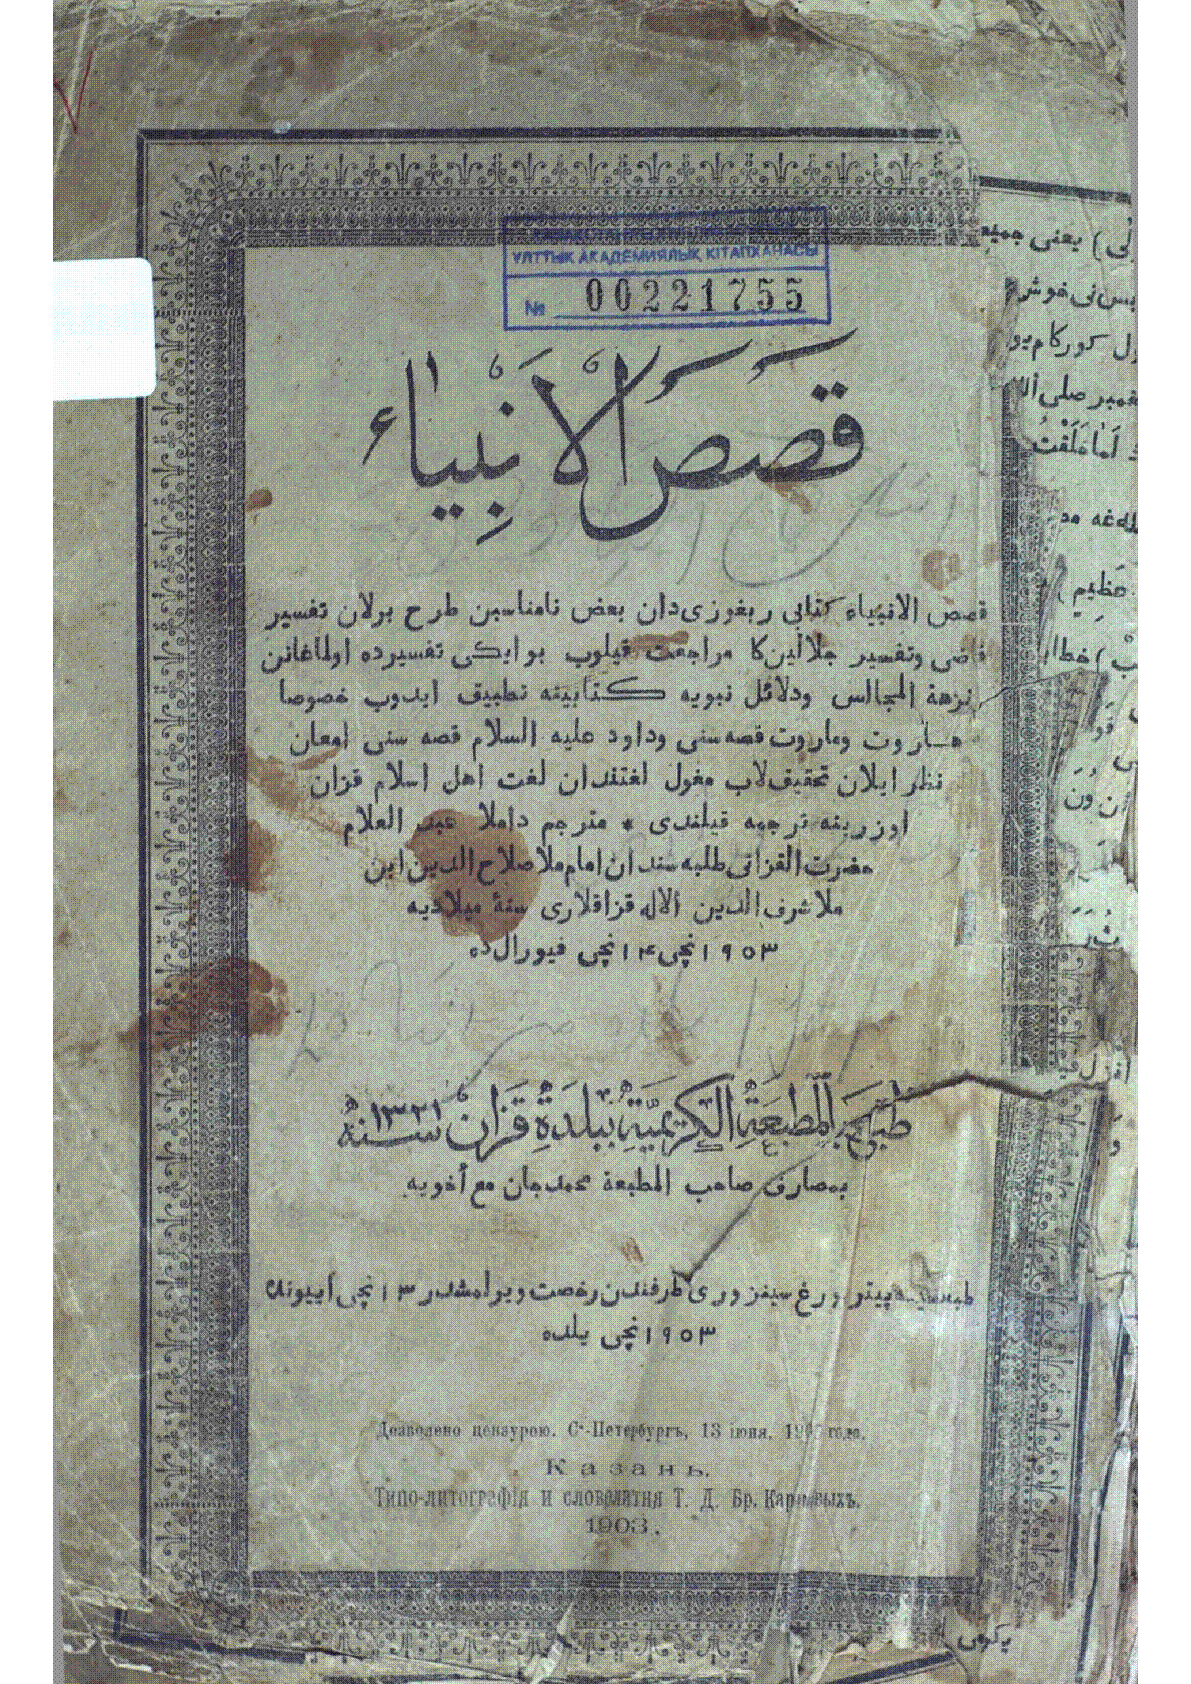 ҰЛТТЫҚ АКАДЕМИЯЛЫҚ КІТАПХАНАСЫ
№ 00221755
قصص الأنبياء
قصص الانبياء كتابى ربغوزى‌دان بعض نامناسبن طرح برلان تفسير
قاضى وتفسير جلالين‌كا مراجعت قيلوب بو ايكى تفسيرده اولماغانن
نزهة المجالس ودلائل نبويه كتابينه تطبيق ايدوب خصوصا
هاروت وماروت قصه‌سنى وداود عليه السلام قصه سنى امعان
نظر ايلان تحقيق‌لاب مغول لغتندان لغت اهل اسلام قزان
اوزرينه ترجمه قيلندى * مترجم داملا عبد العلام
حضرت القزانى طلبه سندان امام ملا صلاح الدين ابن
ملا شرف الدين الاله قزاقلارى سنهٔ ميلاديه
١٩٠٣نچى ١٤نچى فيورال‌ده
طبع بالمطبعة الكريمية ببلدة قزان سنه ١٣٢١
بمصارف صاحب المطبعة محمدجان مع أخويه
پيتربورغ سينزورى طرفندن رخصت ويرلمشدر ١٣نچى اييونده
١٩٠٣نچى يلده
Дозволено цензурою. С.-Петербургъ, 13 іюня, 1903 года.
Казань.
Типо-литографія и словолитня Т. Д. Бр. Каримовыхъ.
1903.
يعنى جميع
خوش
كوركام
صلى
غه
عَظِيم
خطاب